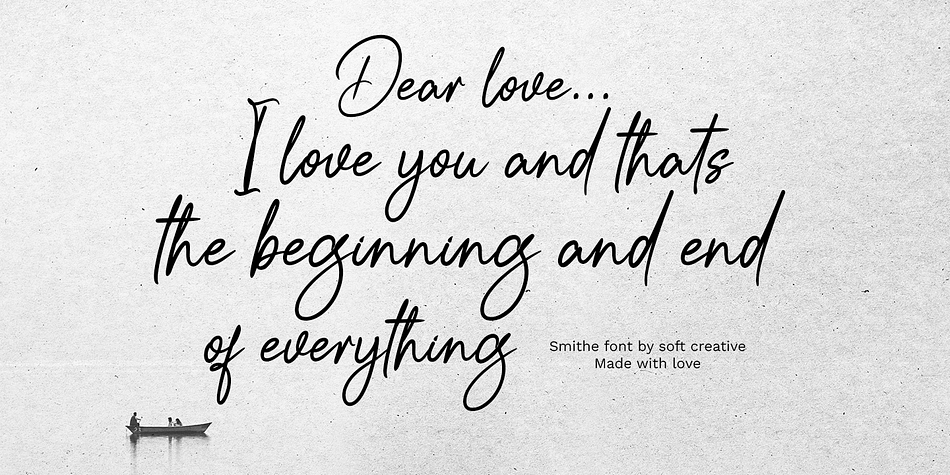 Dear love...
I love you and thats
the beginning and end
of everything
Smithe font by soft creative
Made with love